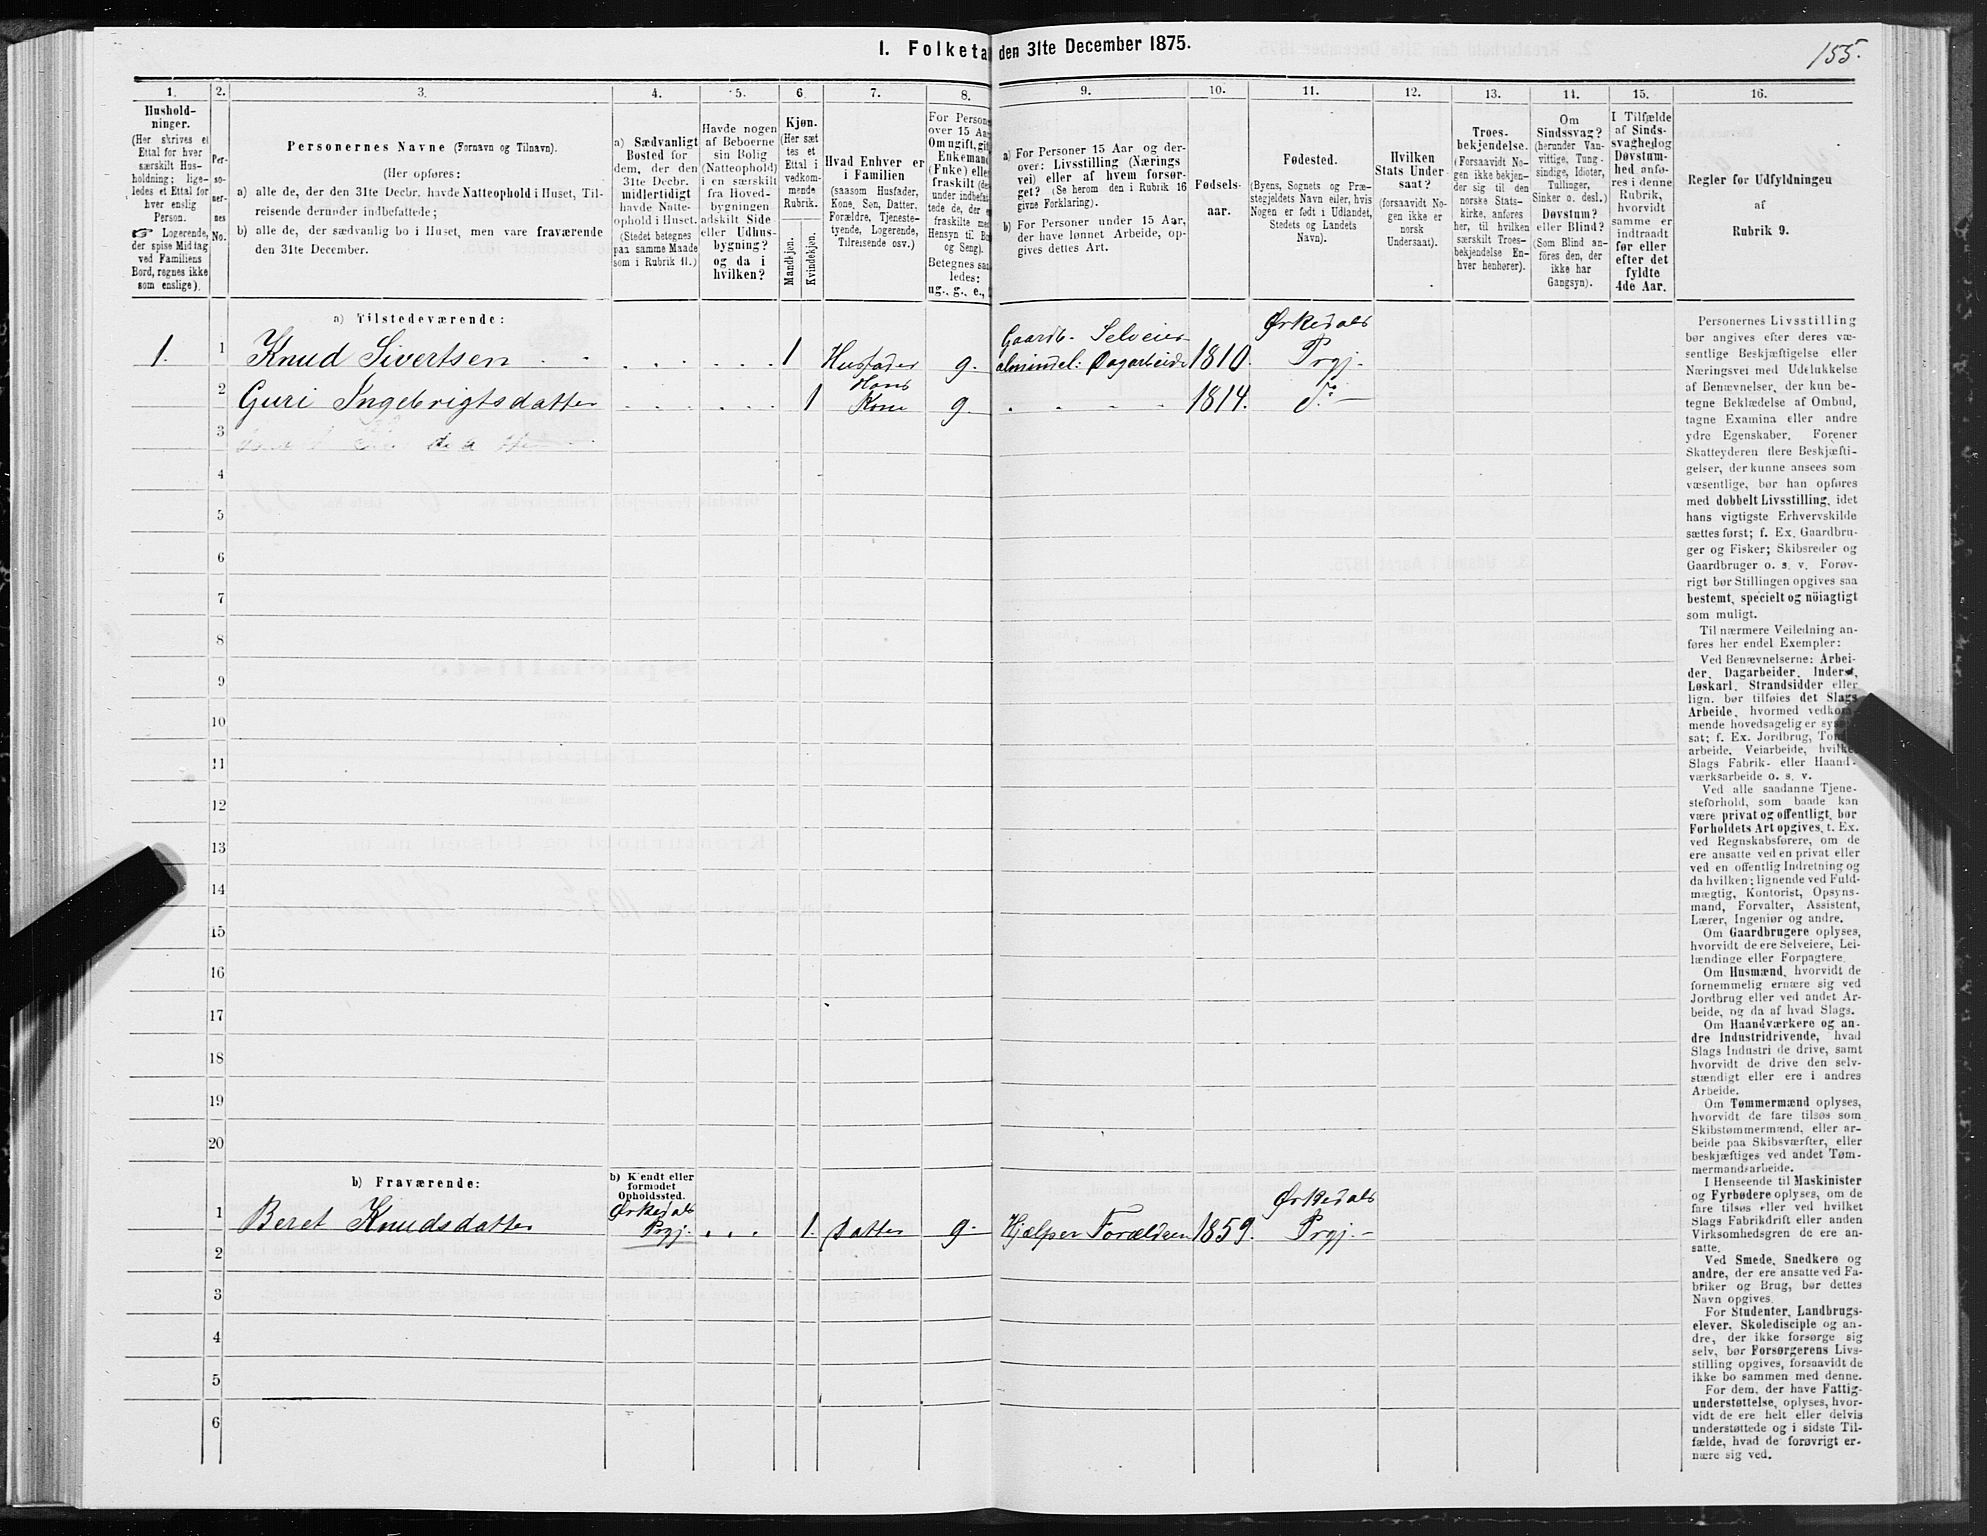 1. Folketa den 31te December 1875.
155.
1. 2. 3. 4. 5. 6. 7. 8. 9. 10. 11. 12. 13. 14. 15. 16.
Hushold-
ninger.
(Her skrives et
Ettal for hver
særskilt Hus-
holdning; lige-
ledes et Ettal for
hver enslig
Person.
☞ Logerende,
der spise Middag
ved Familiens
Bord, regnes ikke
som enslige).
Per-
so-
ner-
nes
No.
Personernes Navne (Fornavn og Tilnavn).
(Her opføres:
a) alle de, der den 31te Decbr. havde Natteophold i Huset, Til-
reisende derunder indbefattede;
b) alle de, der sædvanlig bo i Huset, men vare fraværende
den 31te December.
a) Sædvanligt
Bosted for
dem, der den
31te Decbr.
midlertidigt
havde Natte-
ophold i Huset.
(Stedet betegnes
paa samme Maade
som i Rubrik 11.)
Havde nogen
af Beboerne
sin Bolig
(Natteophold)
i en særskilt
fra Hoved-
bygningen
adskilt Side-
eller Udhus-
bygning?
og da i
hvilken?
Kjøn.
(Her sæt
tes et
Ettal i
vedkom-
mende
Rubrik.
Mandkjøn.
Kvindekjøn.
Hvad Enhver er
i Familien
(saasom Husfader,
Kone, Søn, Datter,
Forældre, Tjeneste-
tyende, Logerende,
Tilreisende osv.)
For Person
over 15 Aa
Om ugift, gif
Enkemand
(Enke) elle
fraskilt (de
under indbefa
tede de, der e
fraskilte me
Hensyn til Bo
og Seng).
Betegnes saa
ledes:
ug., g., e.,
a) For Personer 15 Aar og der-
over: Livsstilling (Nærings
vei) eller af hvem forsør-
get? (Se herom den i Rubrik 16
givne Forklaring).
b) For Personer under 15 Aar,
der have lønnet Arbeide, op-
gives dettes Art.
Fødsels-
aar.
Fødested.
(Byens, Sognets og Præ-
stegjeldets Navn eller, hvis
Nogen er født i Udlandet,
Stedets og Landets
Navn).
Hvilken
Stats Under-
saat?
(forsaavidt No-
gen ikke er
norsk
Undersaat).
Troes-
bekjendelse.
(Forsaavidt No-
gen ikke bekjen-
der sig til den
norske Stats-
kirke, anføres
her, til hvilken
særskilt Troes-
bekjendelse En-
hver henhører).
Om
Sindssvag?
(herunder Van-
vittige, Tung-
sindige, Idioter,
Tullinger,
Sinker o. desl.)
Døvstum?
eller Blind?
(Som Blind an-
føres den, der
ikke har
Gangsyn).
I Tilfælde
af Sinds-
svaghed og
Døvstum-
hed anfø-
res i denne
Rubrik,
hvorvidt
samme er
indtraadt
før eller
efter det
fyldte
4de Aar.
Regler for Udfyldningen
af
Rubrik 9.
a) Tilstedeværende:
1. 1 Knud Sivertsen 1 Husfader g. Gaardb. Selveier almindel: Dagarbeide 1810. Ørkedals Prgj.
2 Guri Ingebrigtsdatter 1 Hans Kone g. 1814. do
3
4
5
6
7
8
9
10
11
12
13
14
15
16
17
18
19
20
b) Fraværende:
b) Kjendt eller
formodet
Opholdssted.
1 Beret Knudsdatter Ørkedals Prgj. 1. Datter g. Hjælper Forældren 1859. Ørkedals Prgj.
2
3
4
5
6
Personernes Livsstilling
bør angives efter deres væ-
sentlige Beskjæftigelse eller
Næringsvei med Udelukkelse
af Benævnelser, der kun be-
tegne Beklædelse af Ombud,
tagne Examina eller andre
ydre Egenskaber. Forener
Skatteyderen flere Beskjæfti-
gelser, der kunne ansees som
væsentlige, bør han opføres
med dobbelt Livsstilling, idet
hans vigtigste Erhvervskilde
sættes først; f. Ex. Gaardbru-
ger og Fisker; Skibsreder og
Gaardbruger o. s. v. Forøv-
rigt bør Stillingen opgives saa
bestemt, specielt og nöiagtigt
som muligt.
Til nærmere Veiledning an-
føres her endel Exempler:
Ved Benævnelserne: Arbei-
der, Dagarbeider, Inderst,
Løskarl, Strandsidder eller
lign. bør tilføies det Slags
Arbeide, hvormed vedkom-
mende hovedsagelig er syssel-
sat; f. Ex. Jordbrug, Tomt-
arbeide, Veiarbeide, hvilket
Slags Fabrik- eller Haand-
værksarbeide o. s. v.
Ved alle saadanne Tjene-
steforhold, som baade kan
være privat og offentligt, bør
Forholdets Art opgives, t. Ex.
ved Regnskabsførere, om de
ere ansatte ved en privat eller
ved en offentlig Indretning og
da hvilken; lignende ved Fuld-
mægtig, Kontorist, Opsyns-
mand, Forvalter, Assistent,
Lærer, Ingeniør og andre.
Om Gaardbrugere oplyses,
hvorvidt de ere Selveiere, Lei-
lændinge eller Forpagtere.
Om Husmænd, hvorvidt de
fornemmelig ernære sig ved
Jordbrug eller ved andet Ar-
beide, og da af hvad Slags.
Om Haandværkere og an-
dre Industridrivende, hvad
Slags Industri de drive, samt
hvorvidt de drive den selv-
stændigt eller ere i andres
Arbeide.
Om Tømmermænd oplyses,
hvorvidt de fare tilsøs som
Skibstømmermænd, eller ar-
beide paa Skibsværfter, eller
beskjæftiges ved andet Tøm-
mermandsarbeide.
I Henseende til Maskinister
og Fyrbødere oplyses, om de
fare tilsøs eller ved hvilket
Slags Fabrikdrift eller anden
Virksomhedsgren de ere an-
satte.
Ved Smede, Snedkere og
andre, der ere ansatte ved Fa-
briker og Brug, bør dettes
Navn opgives.
For Studenter, Landbrugs-
elever, Skoledisciple og an-
dre, der ikke forsørge sig
selv, bør Forsørgerens Livs-
stilling opgives, forsaavidt de
ikke bo sammen med denne.
For dem, der have Fattig-
understøttelse, oplyses, hvor-
vidt de ere helt eller delvis
understøttede og i sidste Til-
fælde, hvad de forøvrigt er-
nære sig ved.